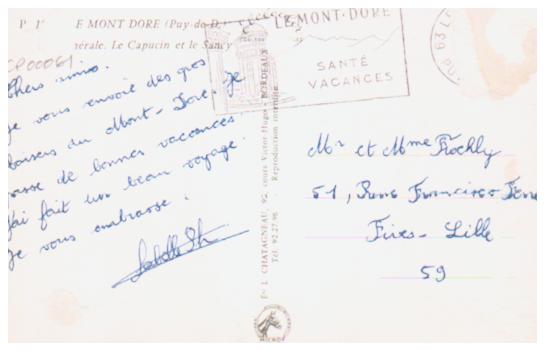 P 1' E MONT DORE (Puy-de-D
nérale. Le Capucin et le Sancy
CP00061
LE MONT-DORE
SANTÉ
VACANCES
63
Chers amis.
Je vous envoie des gros
baisers du Mont-Dore. Je
passe de bonnes vacances.
J'ai fait un beau voyage.
Je vous embrasse.
Ets L. CHATAGNEAU, 92, cours Victor Hugo - BORDEAUX
Tél. 92-27-96 - Reproduction interdite
Mr et Mme
51, Francisco
Fives-Lille
59